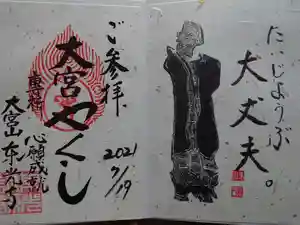 ご参拝
2021
7/19
大宮やくし
心願成就
大宮山東光寺
だいじょうぶ
大丈夫。